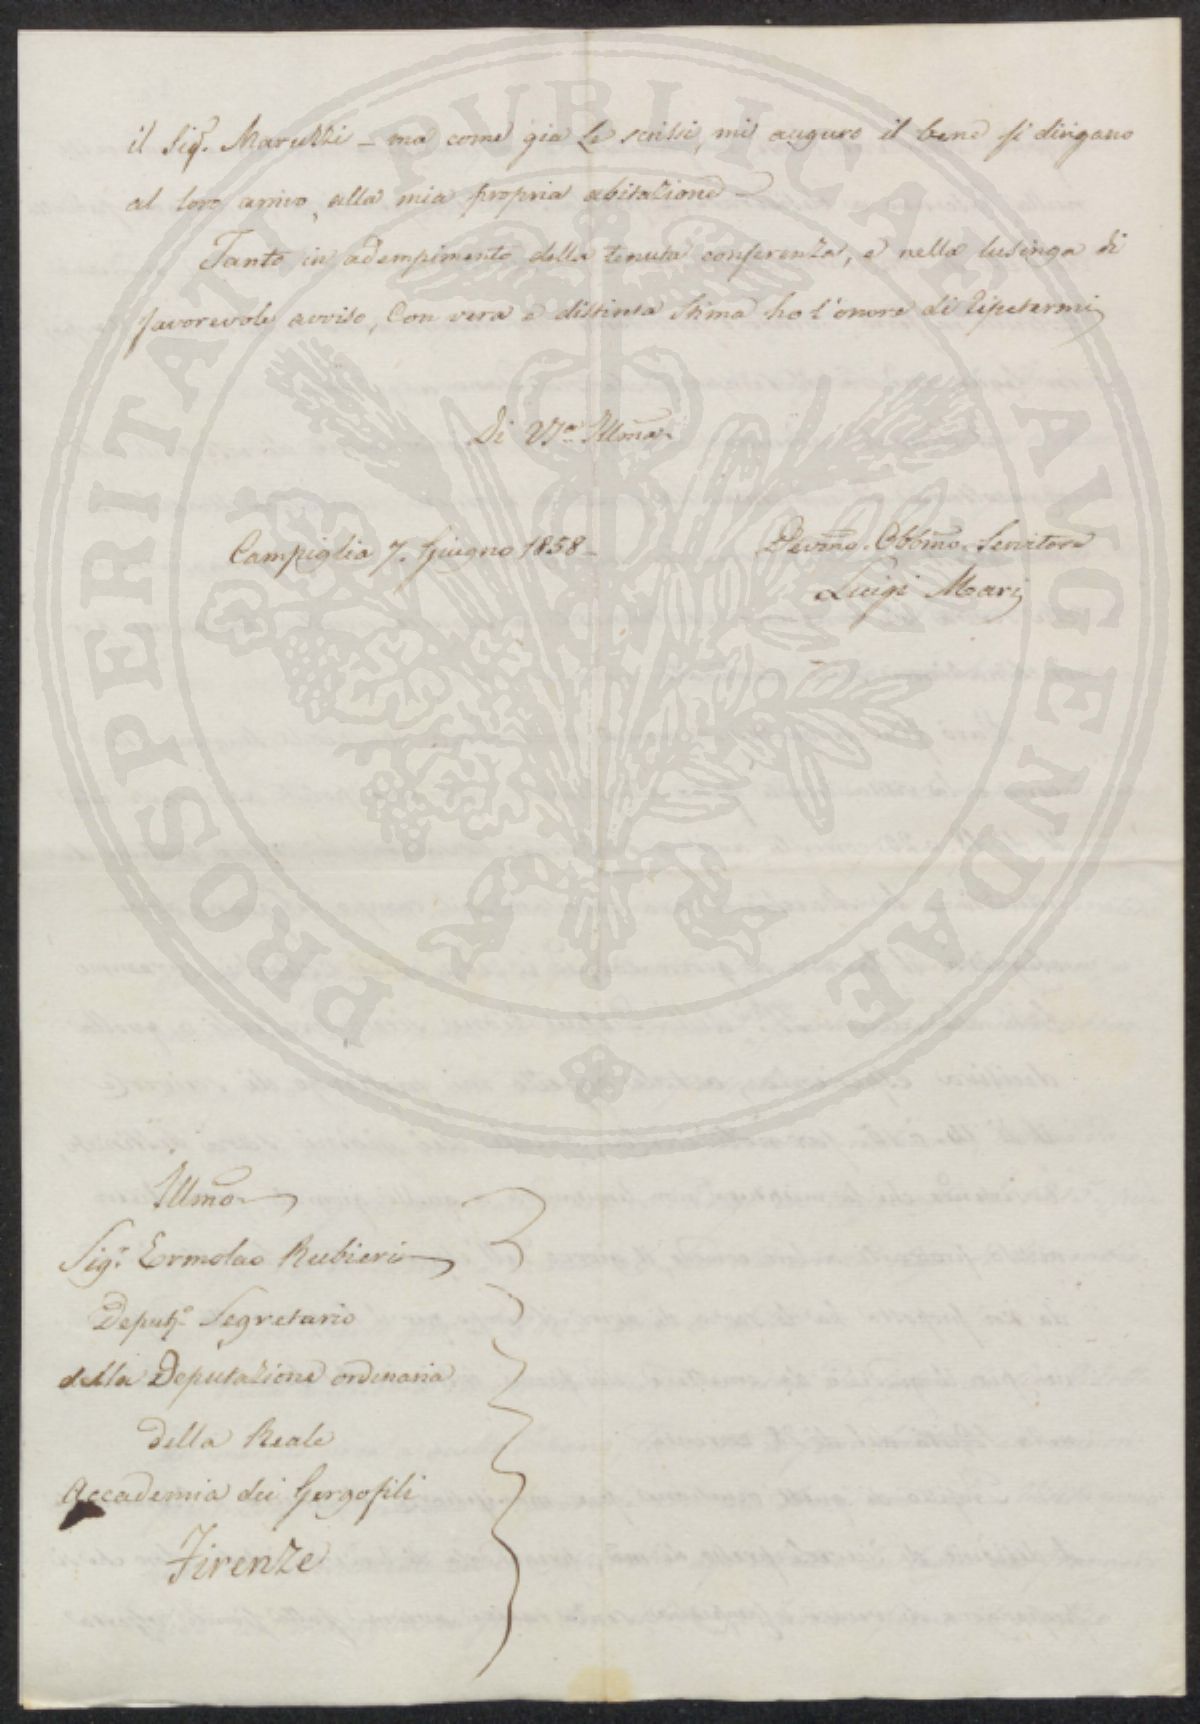 il Sig.r Maruzzi - ma come già Le scrissi, mi auguro il bene si dirigano
al loro arrivo, alla mia propria abitazione -
Tanto in adempimento della tenuta conferenza, e nella lusinga di
favorevole avviso, Con vera e distinta Stima ho l'onore di ripetermi
Di VS.a Illma
Campiglia 7. Giugno 1858 -
Devmo. Obbmo. Servitore
Luigi Mari
Illmo
Sig.r Ermolao Rubieri
Deput.o Segretario
della Deputazione ordinaria
della Reale
Accademia dei Gergofili
Firenze
PROSPERITATI PUBLICAE AVGENDAE